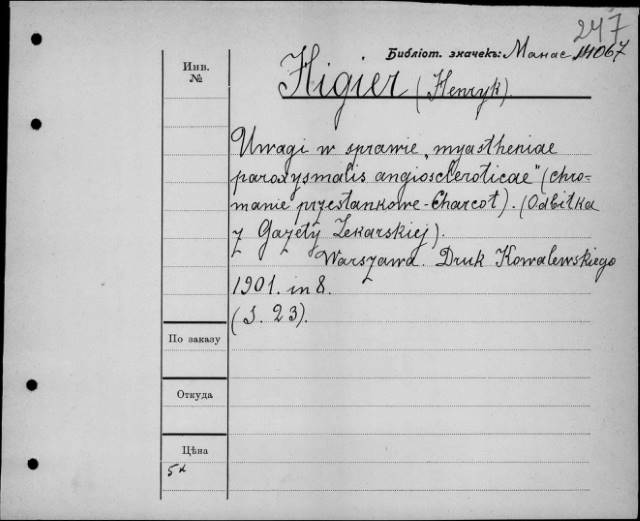 247
Библіот. значекъ: Манас 14067
Инв.
№
Higier (Henryk).
Uwagi w sprawie „myastheniae
paroxysmalis angioscleroticae" (chro-
manie przestankowe-Charcot). (Odbitka
z Gazety Lekarskiej).
Warszawa. Druk Kowalewskiego
1901. in 8.
(S. 23).
По заказу
Откуда
Цѣна